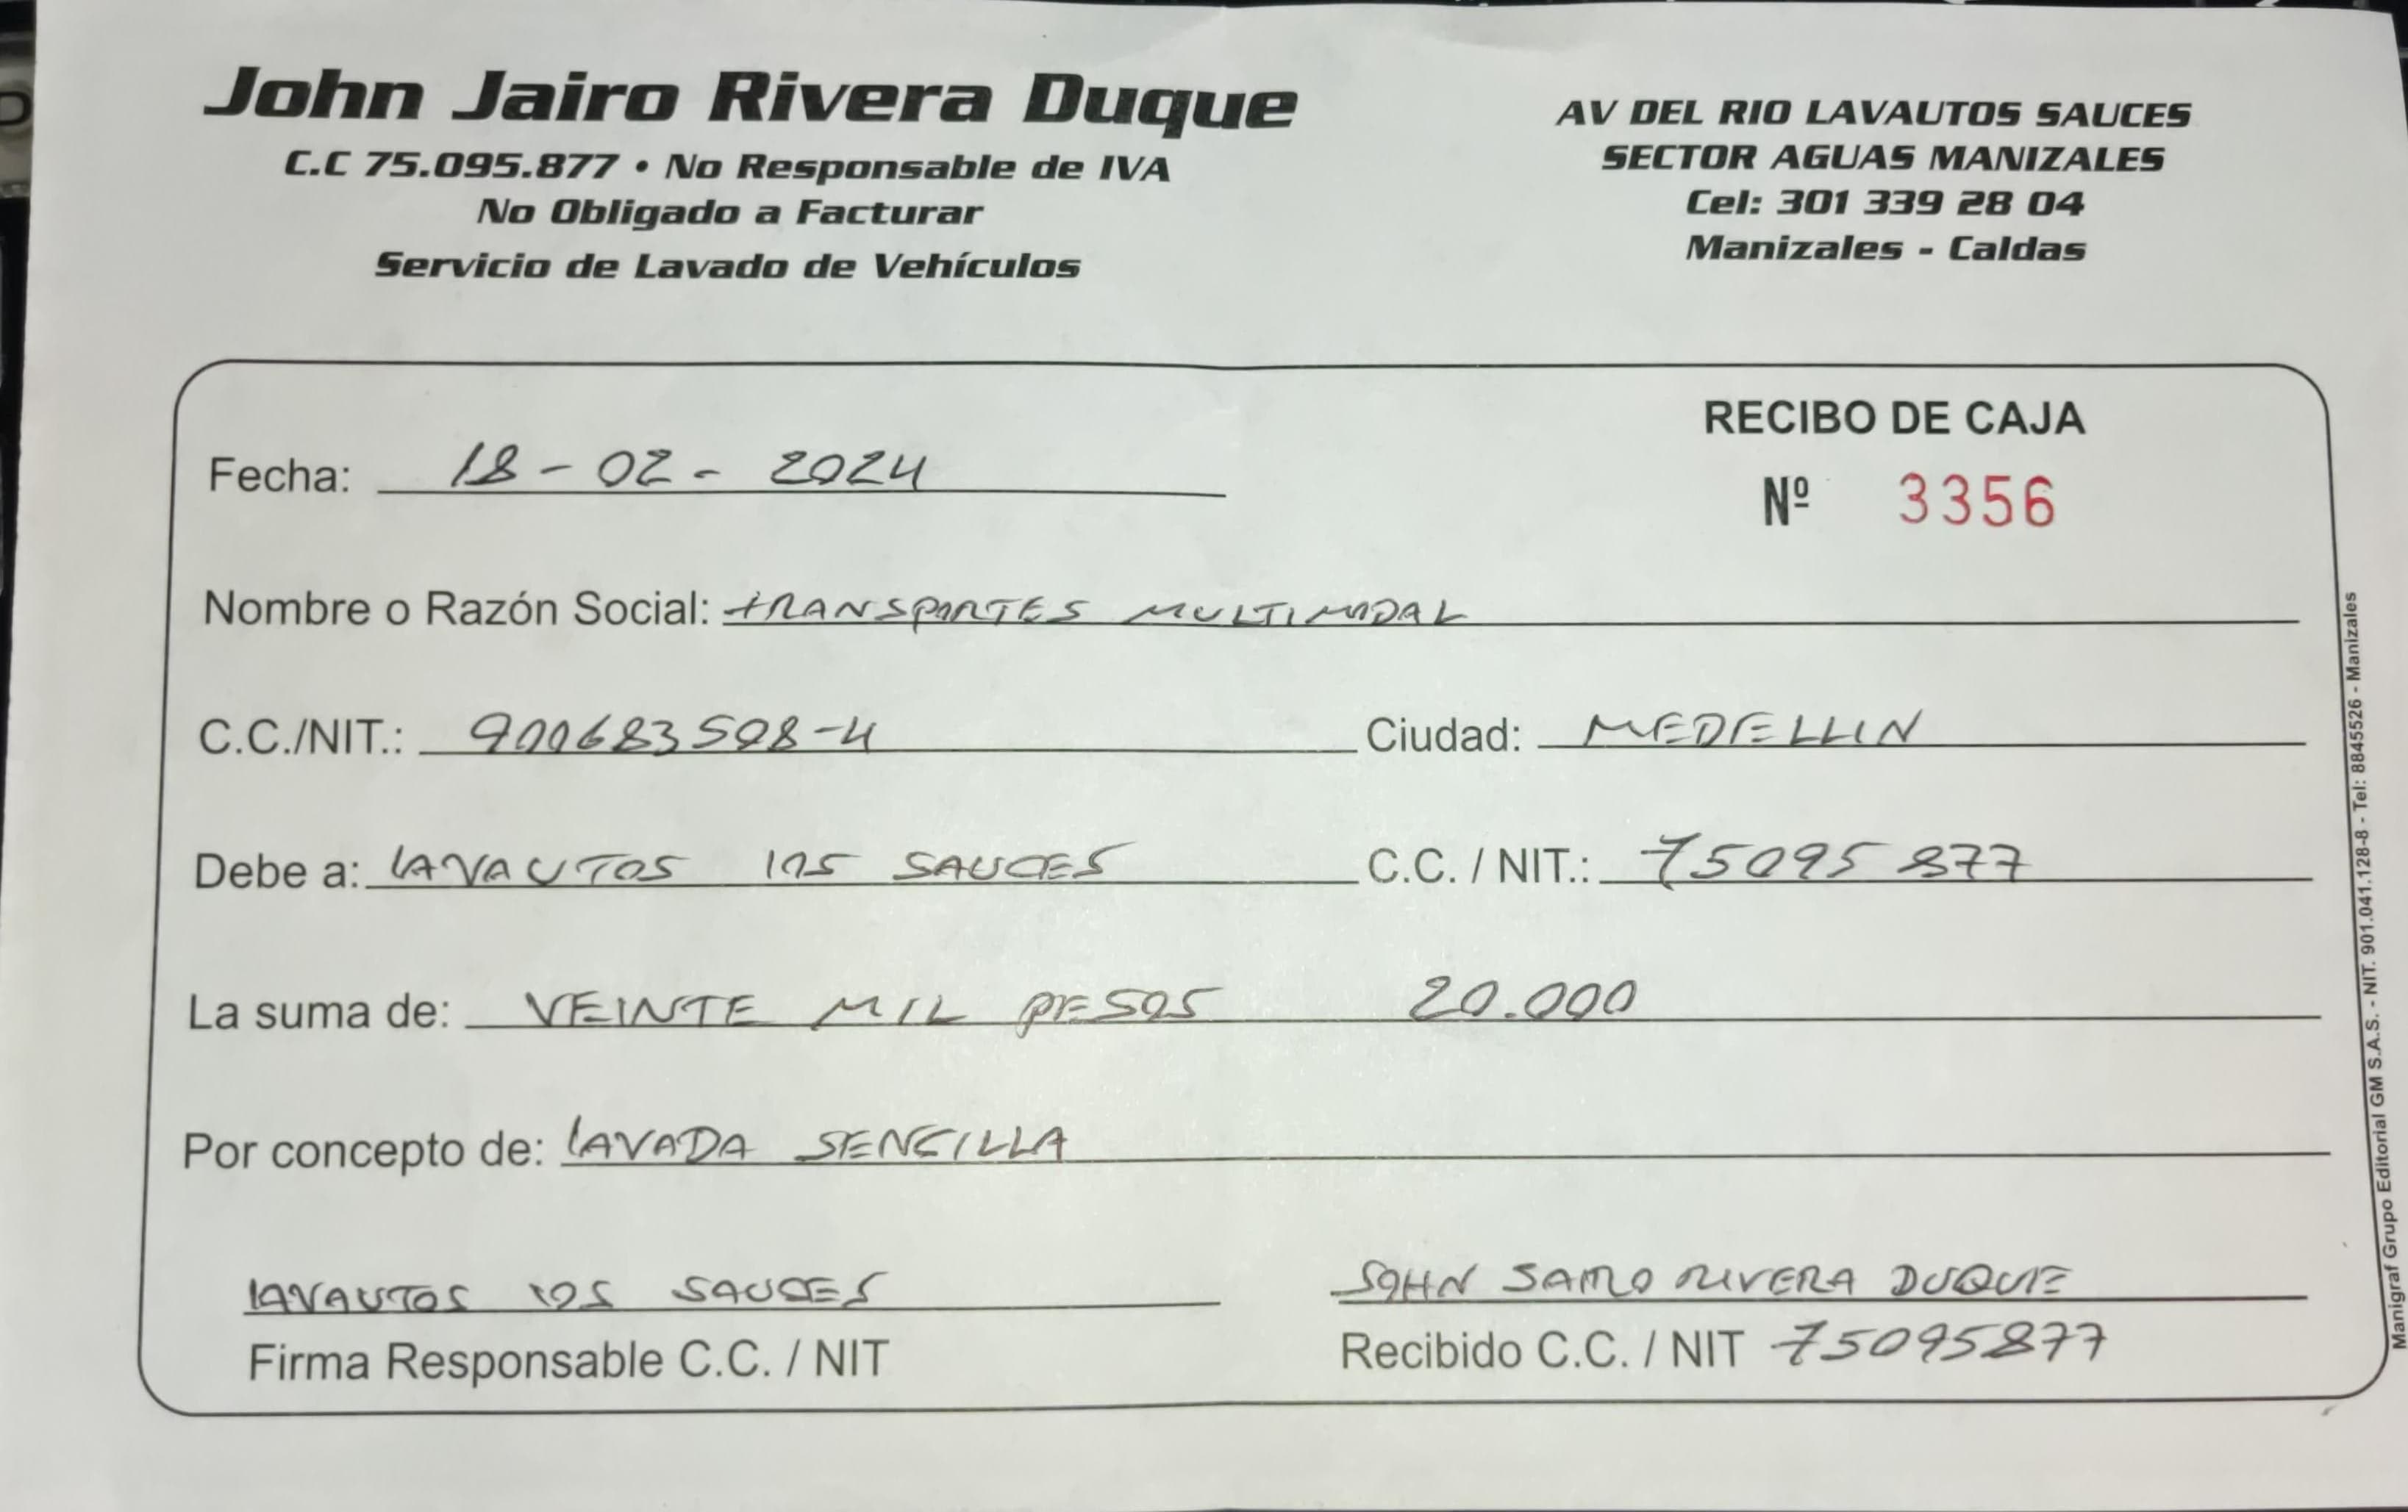 John Jairo Rivera Duque
C.C 75.095.877 • No Responsable de IVA
No Obligado a Facturar
Servicio de Lavado de Vehículos
AV DEL RIO LAVAUTOS SAUCES
SECTOR AGUAS MANIZALES
Cel: 301 339 28 04
Manizales - Caldas
RECIBO DE CAJA
Nº 3356
Fecha: 18 - 02 - 2024
Nombre o Razón Social: TRANSPORTES MULTIMODAL
C.C./NIT.: 900683508-4 Ciudad: MEDELLIN
Debe a: LAVAUTOS LOS SAUCES C.C. / NIT.: 75095877
La suma de: VEINTE MIL PESOS 20.000
Por concepto de: LAVADA SENCILLA
LAVAUTOS LOS SAUCES
Firma Responsable C.C. / NIT
JOHN JAIRO RIVERA DUQUE
Recibido C.C. / NIT 75095877
Manigraf Grupo Editorial GM S.A.S. - NIT. 901.041.128-8 - Tel: 8845526 - Manizales